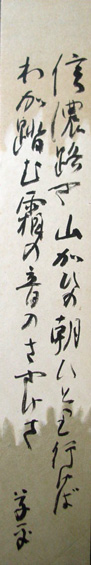 信濃路や山かひの朝ひとり行けば
わか踏む霜の音のさやけさ